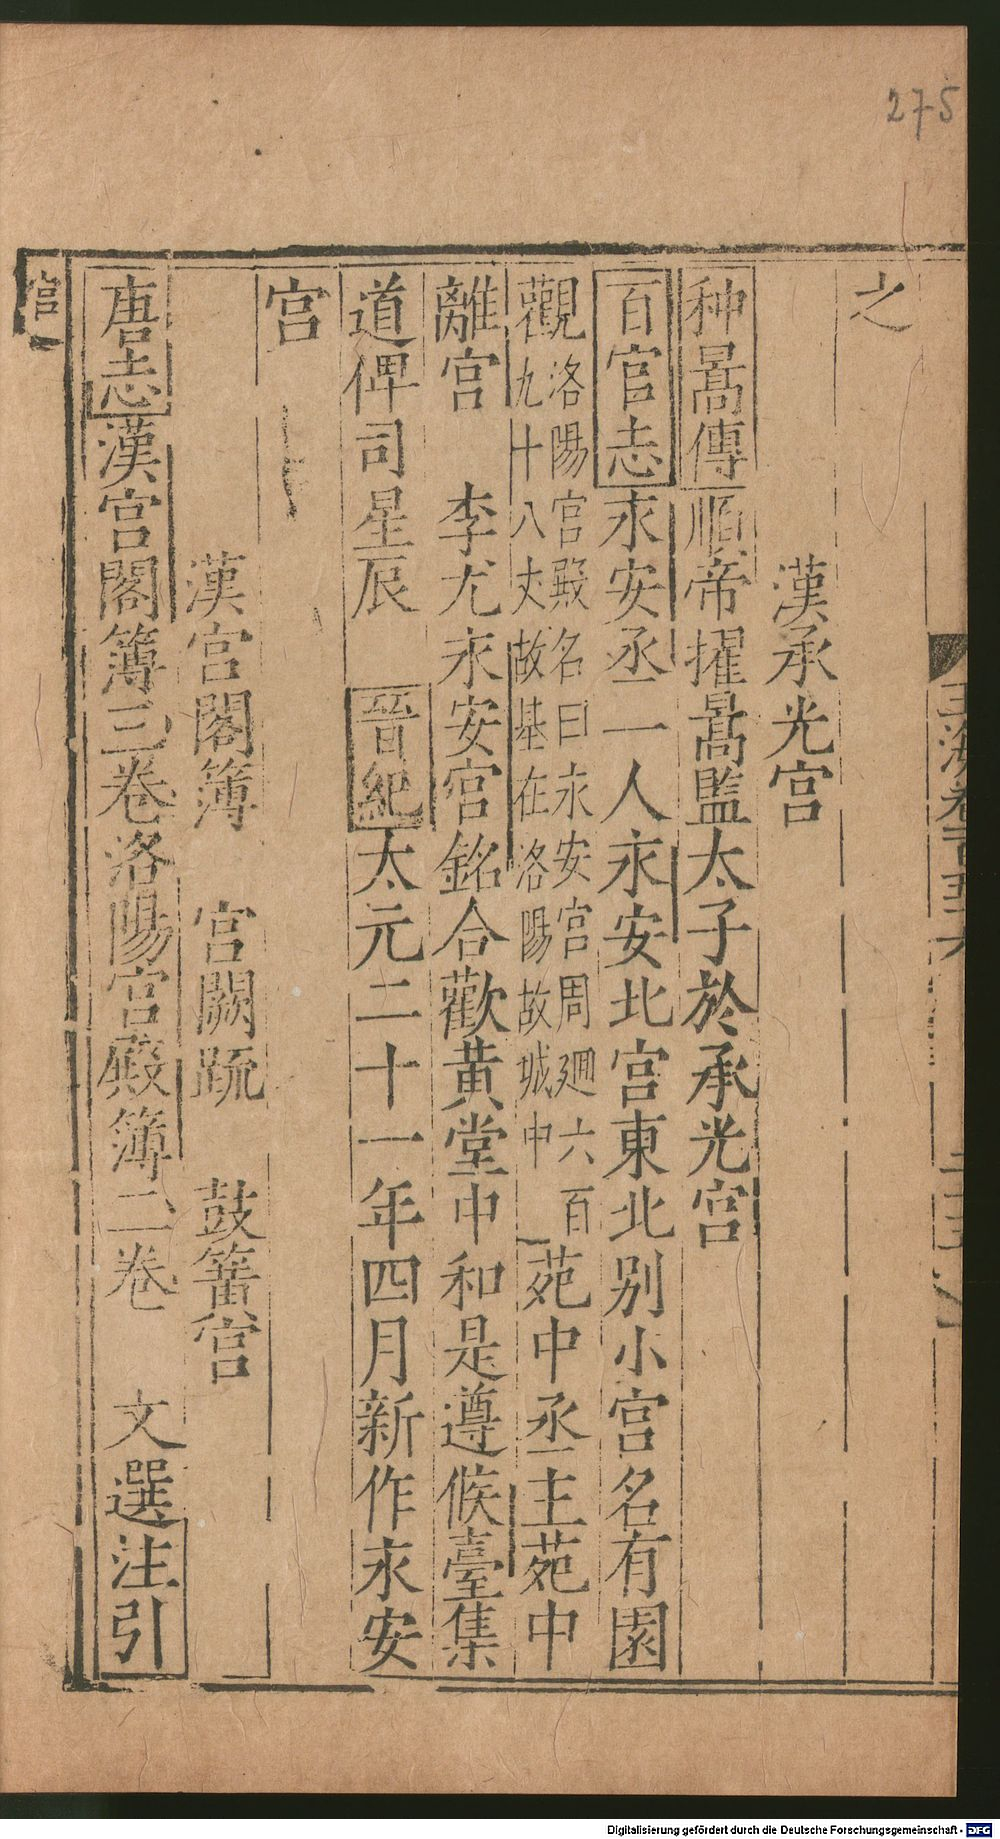 275
玉海卷百五十六
之
漢承光宫
种暠傳順帝擢暠監太子於承光宫
百官志永安丞一人永安北宫東北别小宫名有園
觀洛陽宫殿名曰永安宫周廻六百九十八丈故基在洛陽故城中苑中丞主苑中
離宫 李尤永安宫銘合歡黄堂中和是遵候臺集
道俾司星辰 晉紀太元二十一年四月新作永安
宫
漢宫閣簿 宫闕䟽 鼓簧宫
唐志漢宫閣簿三卷洛陽宫殿簿二卷 文選注引
宫
Digitalisierung gefördert durch die Deutsche Forschungsgemeinschaft - DFG